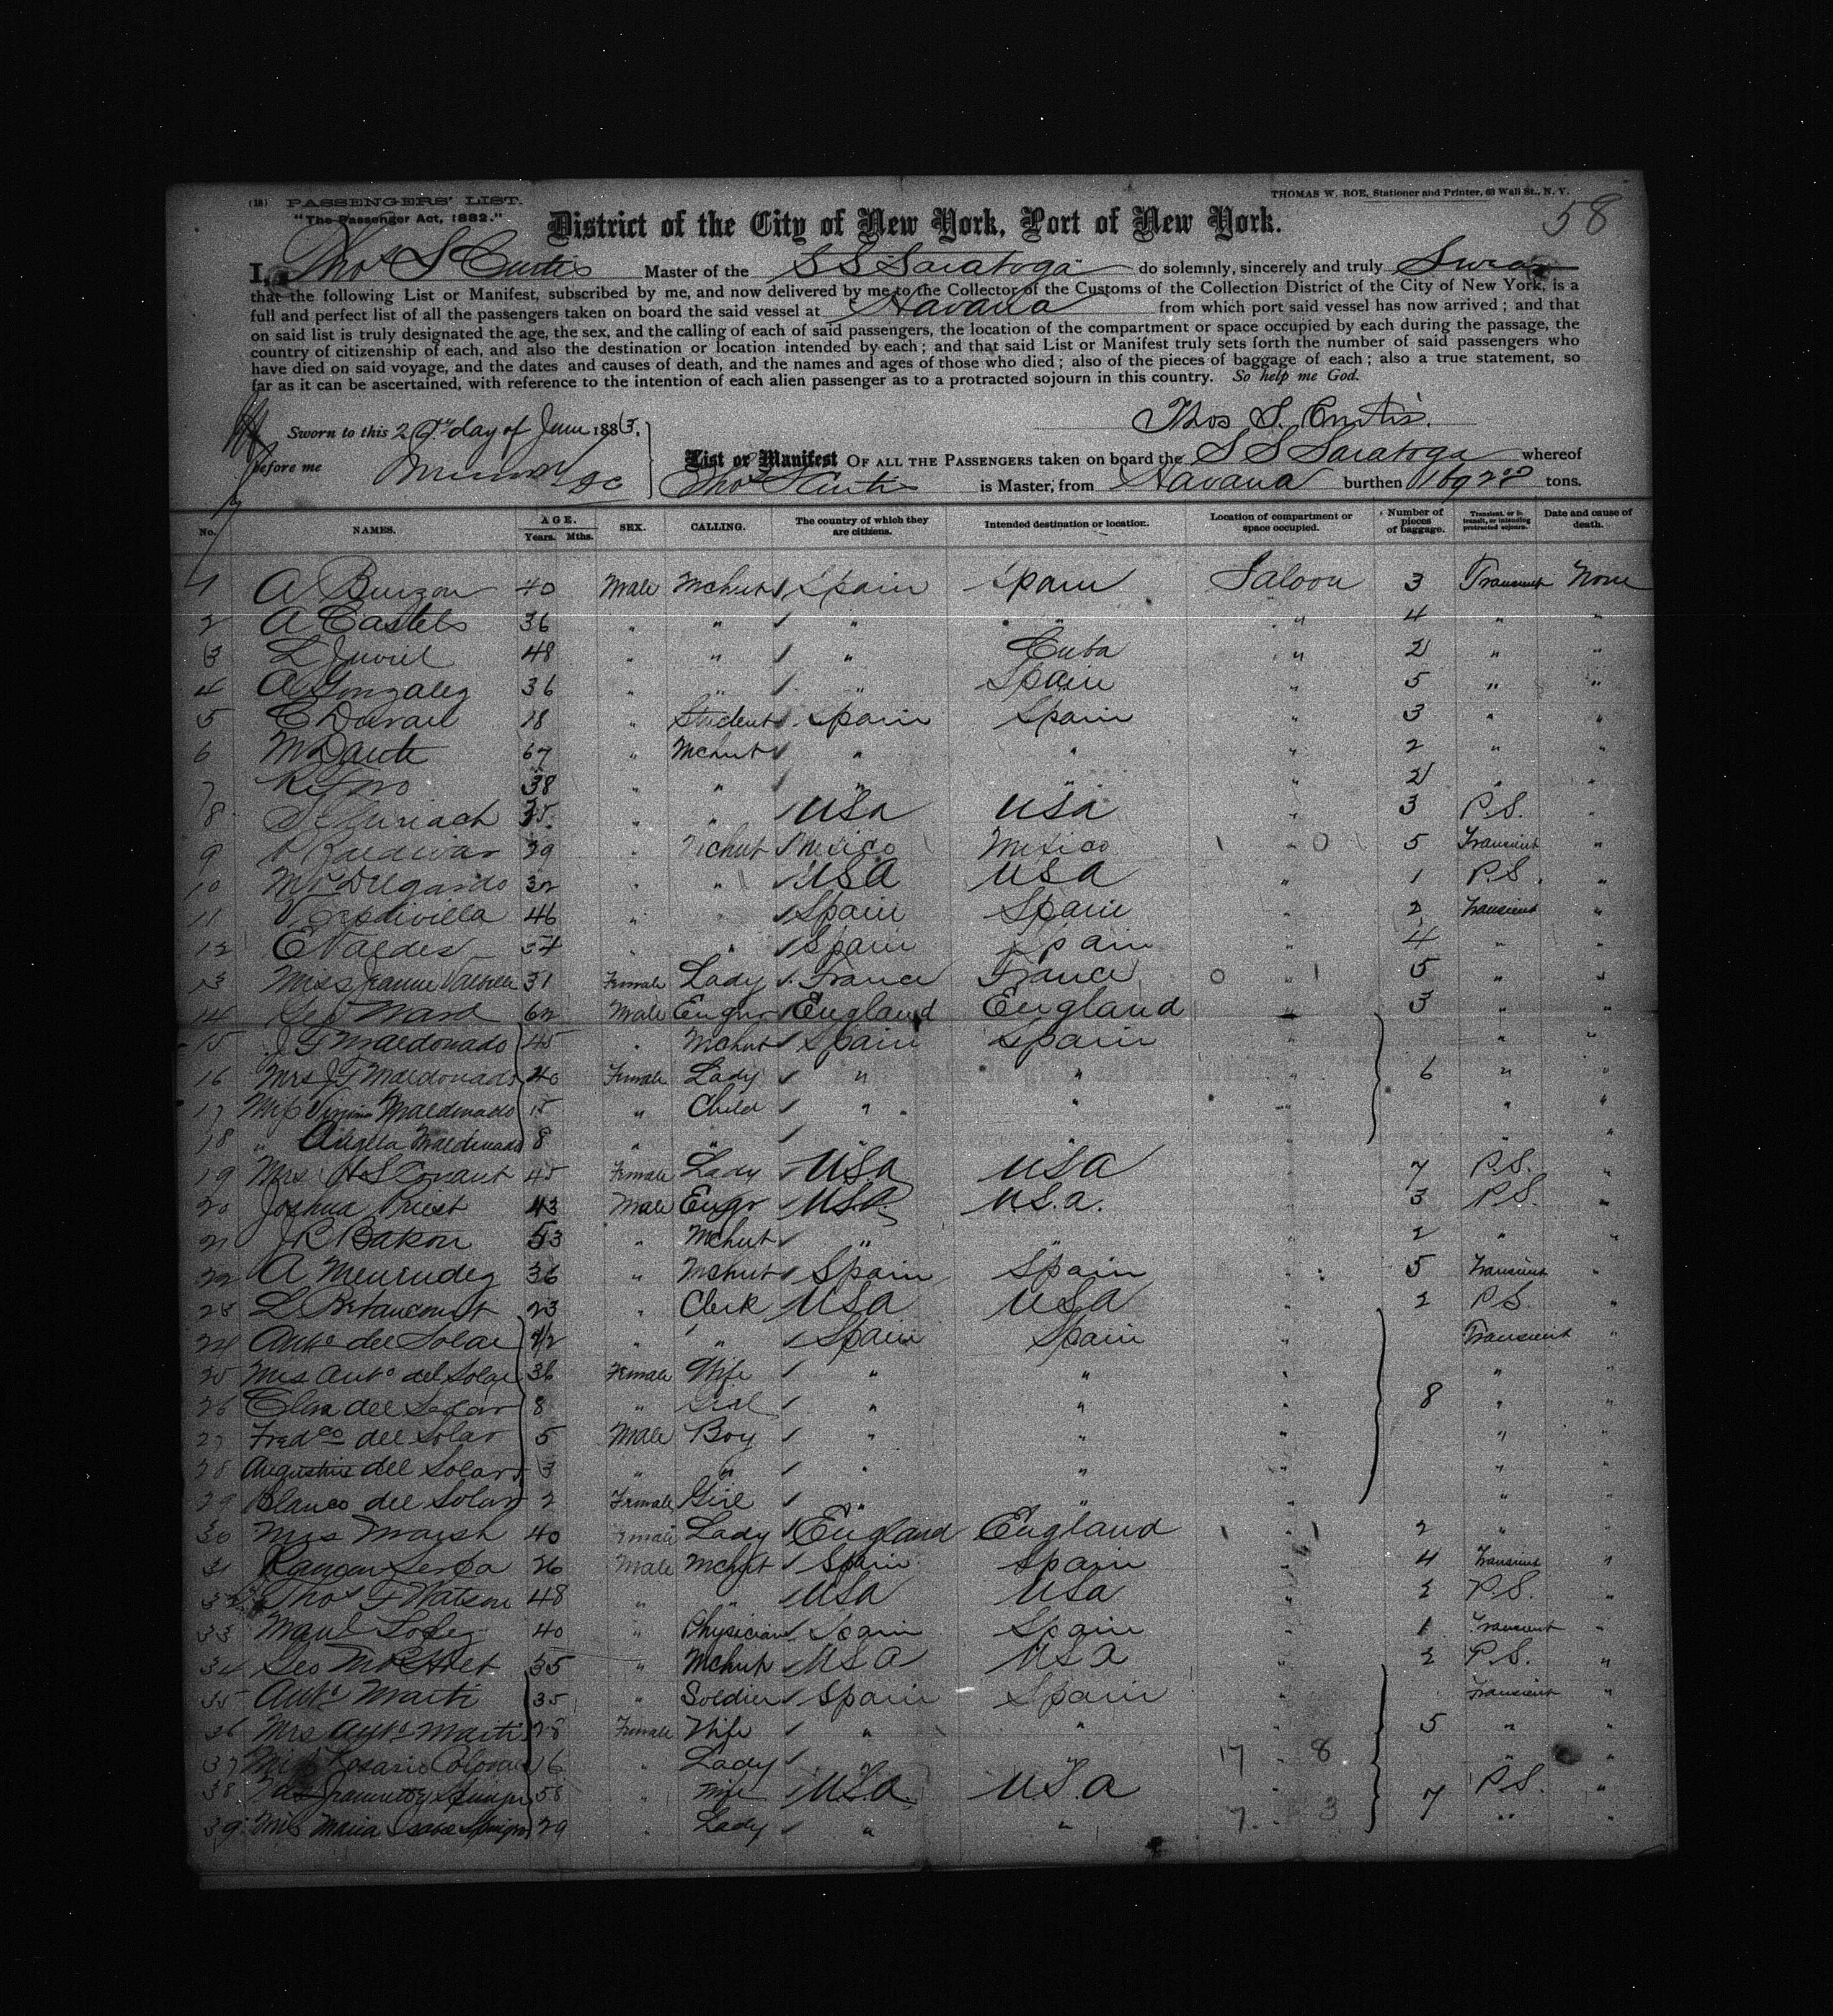 (18) PASSENGERS' LIST.
"The Passenger Act, 1882."
THOMAS W. ROE, Stationer and Printer, 63 Wall St., N. Y.
58
District of the City of New York, Port of New York.
I, Thos S Curtis Master of the SS Saratoga do solemnly, sincerely and truly Swear
that the following List or Manifest, subscribed by me, and now delivered by me to the Collector of the Customs of the Collection District of the City of New York, is a
full and perfect list of all the passengers taken on board the said vessel at Havana from which port said vessel has now arrived; and that
on said list is truly designated the age, the sex, and the calling of each of said passengers, the location of the compartment or space occupied by each during the passage, the
country of citizenship of each, and also the destination or location intended by each; and that said List or Manifest truly sets forth the number of said passengers who
have died on said voyage, and the dates and causes of death, and the names and ages of those who died; also of the pieces of baggage of each; also a true statement, so
far as it can be ascertained, with reference to the intention of each alien passenger as to a protracted sojourn in this country. So help me God.
Thos S. Curtis.
Sworn to this day of June 1883,
before me
List or Manifest OF ALL THE PASSENGERS taken on board the SS Saratoga whereof
Thos S Curtis is Master, from Havana burthen tons.
No. NAMES. AGE. Years. Mths. SEX. CALLING. The country of which they are citizens. Intended destination or location. Location of compartment or space occupied. Number of pieces of baggage. Transient, or in transit, or intending protracted sojourn. Date and cause of death.
1 A 40 Male Mchnt Spain Spain Saloon 3 Transient None
2 A Castels 36 " " " " " 4 " "
3 L 48 " " " Cuba " 2 " "
4 A Gonzalez 36 " " " Spain " 5 " "
5 E 18 " Student Spain Spain " 3 " "
6 M 67 " Mchnt " " " 2 " "
7 38 " " " " " 2 " "
8 35 " " USA USA " 3 P.S. "
9 29 " Mchnt Mexico Mexico " 5 Transient "
10 Mr Delgardo 32 " " USA USA " 1 P.S. "
11 V 46 " " Spain Spain " 2 Transient "
12 E Valdes " " Spain Spain " 4 " "
13 Miss Jeanne 31 Female Lady France France " 5 " "
14 Geo Ward 62 Male Engnr England England " 3 " "
15 J F Maldonado 45 " Mchnt Spain Spain " " "
16 Mrs J F Maldonado 40 Female Lady " " " 6 " "
17 Miss Maldonado 15 " Child " " " " "
18 " Maldonado 8 " " " " " " "
19 Mrs H S Conant 45 Female Lady USA USA " 7 P.S. "
20 Joshua Priest 43 Male Engr USA U.S.a. " 3 P.S. "
21 J R 53 " Mchnt " " " 2 " "
22 A Menendez 36 " Mchnt Spain Spain " 5 Transient "
23 L Betancourt 23 " Clerk USA USA " 2 P.S. "
24 Anto del Solar 42 " " Spain Spain " Transient "
25 Mrs Anto del Solar 36 Female Wife " " " " "
26 Elisa del Solar 8 " Girl " " " 8 " "
27 Fredco del Solar 5 Male Boy " " " " "
28 Augustus del Solar 3 " " " " " " "
29 Blanco del Solar 2 Female Girl " " " " "
30 Mrs Marsh 40 Female Lady England England " 2 " "
31 Ramon 26 Male Mchnt Spain Spain " 4 Transient "
32 Thos F Watson 48 " " USA USA " 2 P.S. "
33 Manl 40 " Physician Spain Spain " 1 Transient "
34 Geo 35 " Mchnt USA USA " 2 P.S. "
35 Anto Marti 35 " Soldier Spain Spain " Transient "
36 Mrs Anto Marti 28 Female Wife " " " 5 " "
37 Miss Rosario 16 " Lady " " 17 " 8 " "
38 58 " Wife U.S.a. U.S.a " 7 P.S. "
39 Miss Maria Isabel 29 " Lady " " 7 3 " "